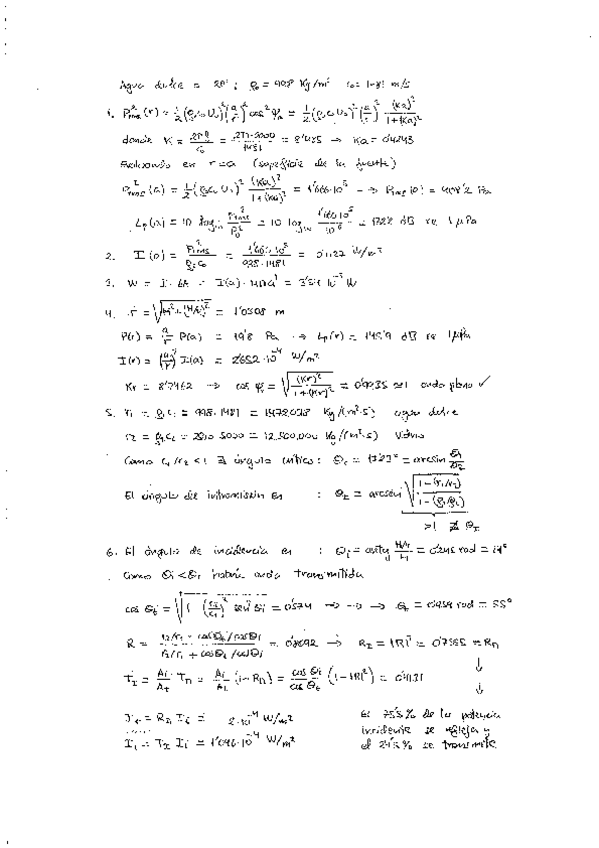 Agua dulce = 20º ; ρ₀ = 998 Kg/m³ c₀ = 1481 m/s
1. P²rms (r) = 1/2 (ρ₀c₀U₀)² (a/r)² cos² φa = 1/2 (ρ₀c₀U₀)² (a/r)² (Ka)²/1+(Ka)²
donde K = 2πf/c₀ = 2π·2000/1481 = 8'485 → Ka = 0'4243
Evaluando en r=a (superficie de la fuente)
P²rms (a) = 1/2 (ρ₀c₀U₀)² (Ka)²/1+(Ka)² = 1'666·10⁵ → Prms(a) = 408'2 Pa
Lp(a) = 10 log₁₀ P²rms/P₀² = 10 log₁₀ = 172'2 dB re 1μPa
2. I(a) = P²rms/ρ₀c₀ = 1'666·10⁵/998·1481 = 0'1127 W/m²
3. W = I · = I(a)·4πa² = 10⁻³ W
4. r = = 1'0308 m
P(r) = a/r P(a) = 19'8 Pa → Lp(r) = 145'9 dB re 1μPa
I(r) = (a/r)² I(a) = 2'652·10⁻⁴ W/m²
Kr = 8'7462 → cos φr = √(Kr)²/1+(Kr)² = 0'9935 ≈1 onda plana ✓
5. r₁ = ρ₁c₁ = 998·1481 = 1478,038 Kg/(m²·s) agua dulce
r₂ = ρ₂c₂ = 5000 = 12.500,000 Kg/(m²·s) Vidrio
Como c₁/c₂ <1 ∃ ángulo crítico: θc = 17'23º = arcsen c₁/c₂
El ángulo de intromisión es : θI = arcsen √1-(r₁/r₂)²/1-(ρ₁/ρ₂)²
>1 ∄ θI
6. El ángulo de incidencia es : θi = = 0'245 rad = 14º
Como θi < θc habrá onda transmitida
cos θt = √1-(c₂/c₁)² sen² θi = 0'574 → → θt = rad = 55º
R = r₂/r₁ - cosθt/cosθi / r₂/r₁ + cosθt/cosθi = 0'8692 → RI = |R|² = 0'7555 = RΠ
TI = Ai/At TΠ = Ai/At (1-RΠ) = cos θi/cos θt (1-|R|²) = 0'4131
Ir = RI Ii = 2·10⁻⁴ W/m²
It = TI Ii = 1'096·10⁻⁴ W/m²
El 75'5% de la potencia
incidente se refleja y
el 24'5% se transmite